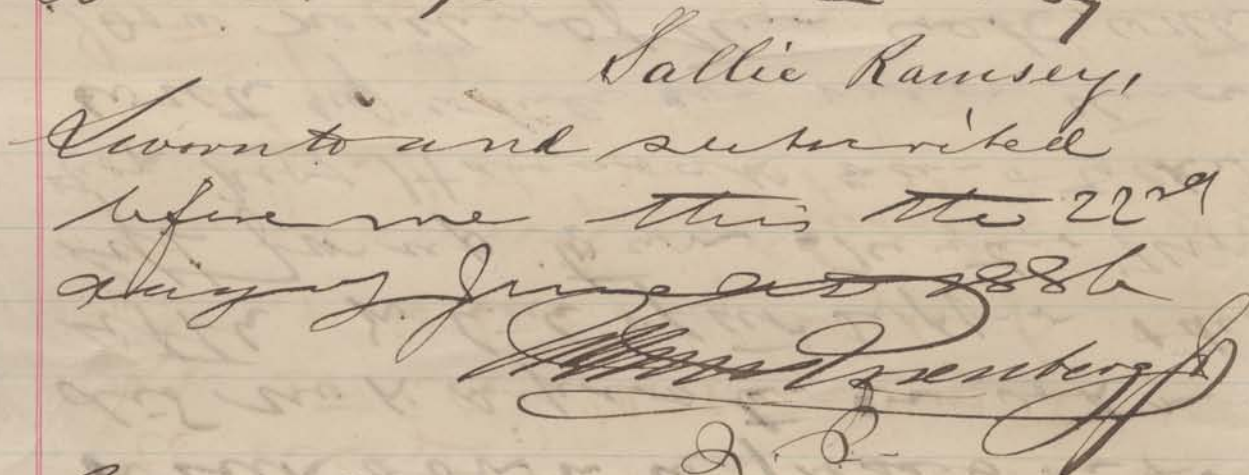 Sallie Ramsey,
Sworn to and subscribed
before me this the 22nd
day of June AD 1886
Rosenberg Jr